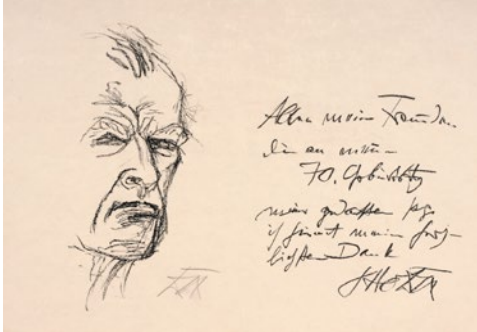 Allen meinen Freunden
die an meinem
70. Geburtstag
meiner gedachten
ich hiermit meinen herz-
lichsten Dank